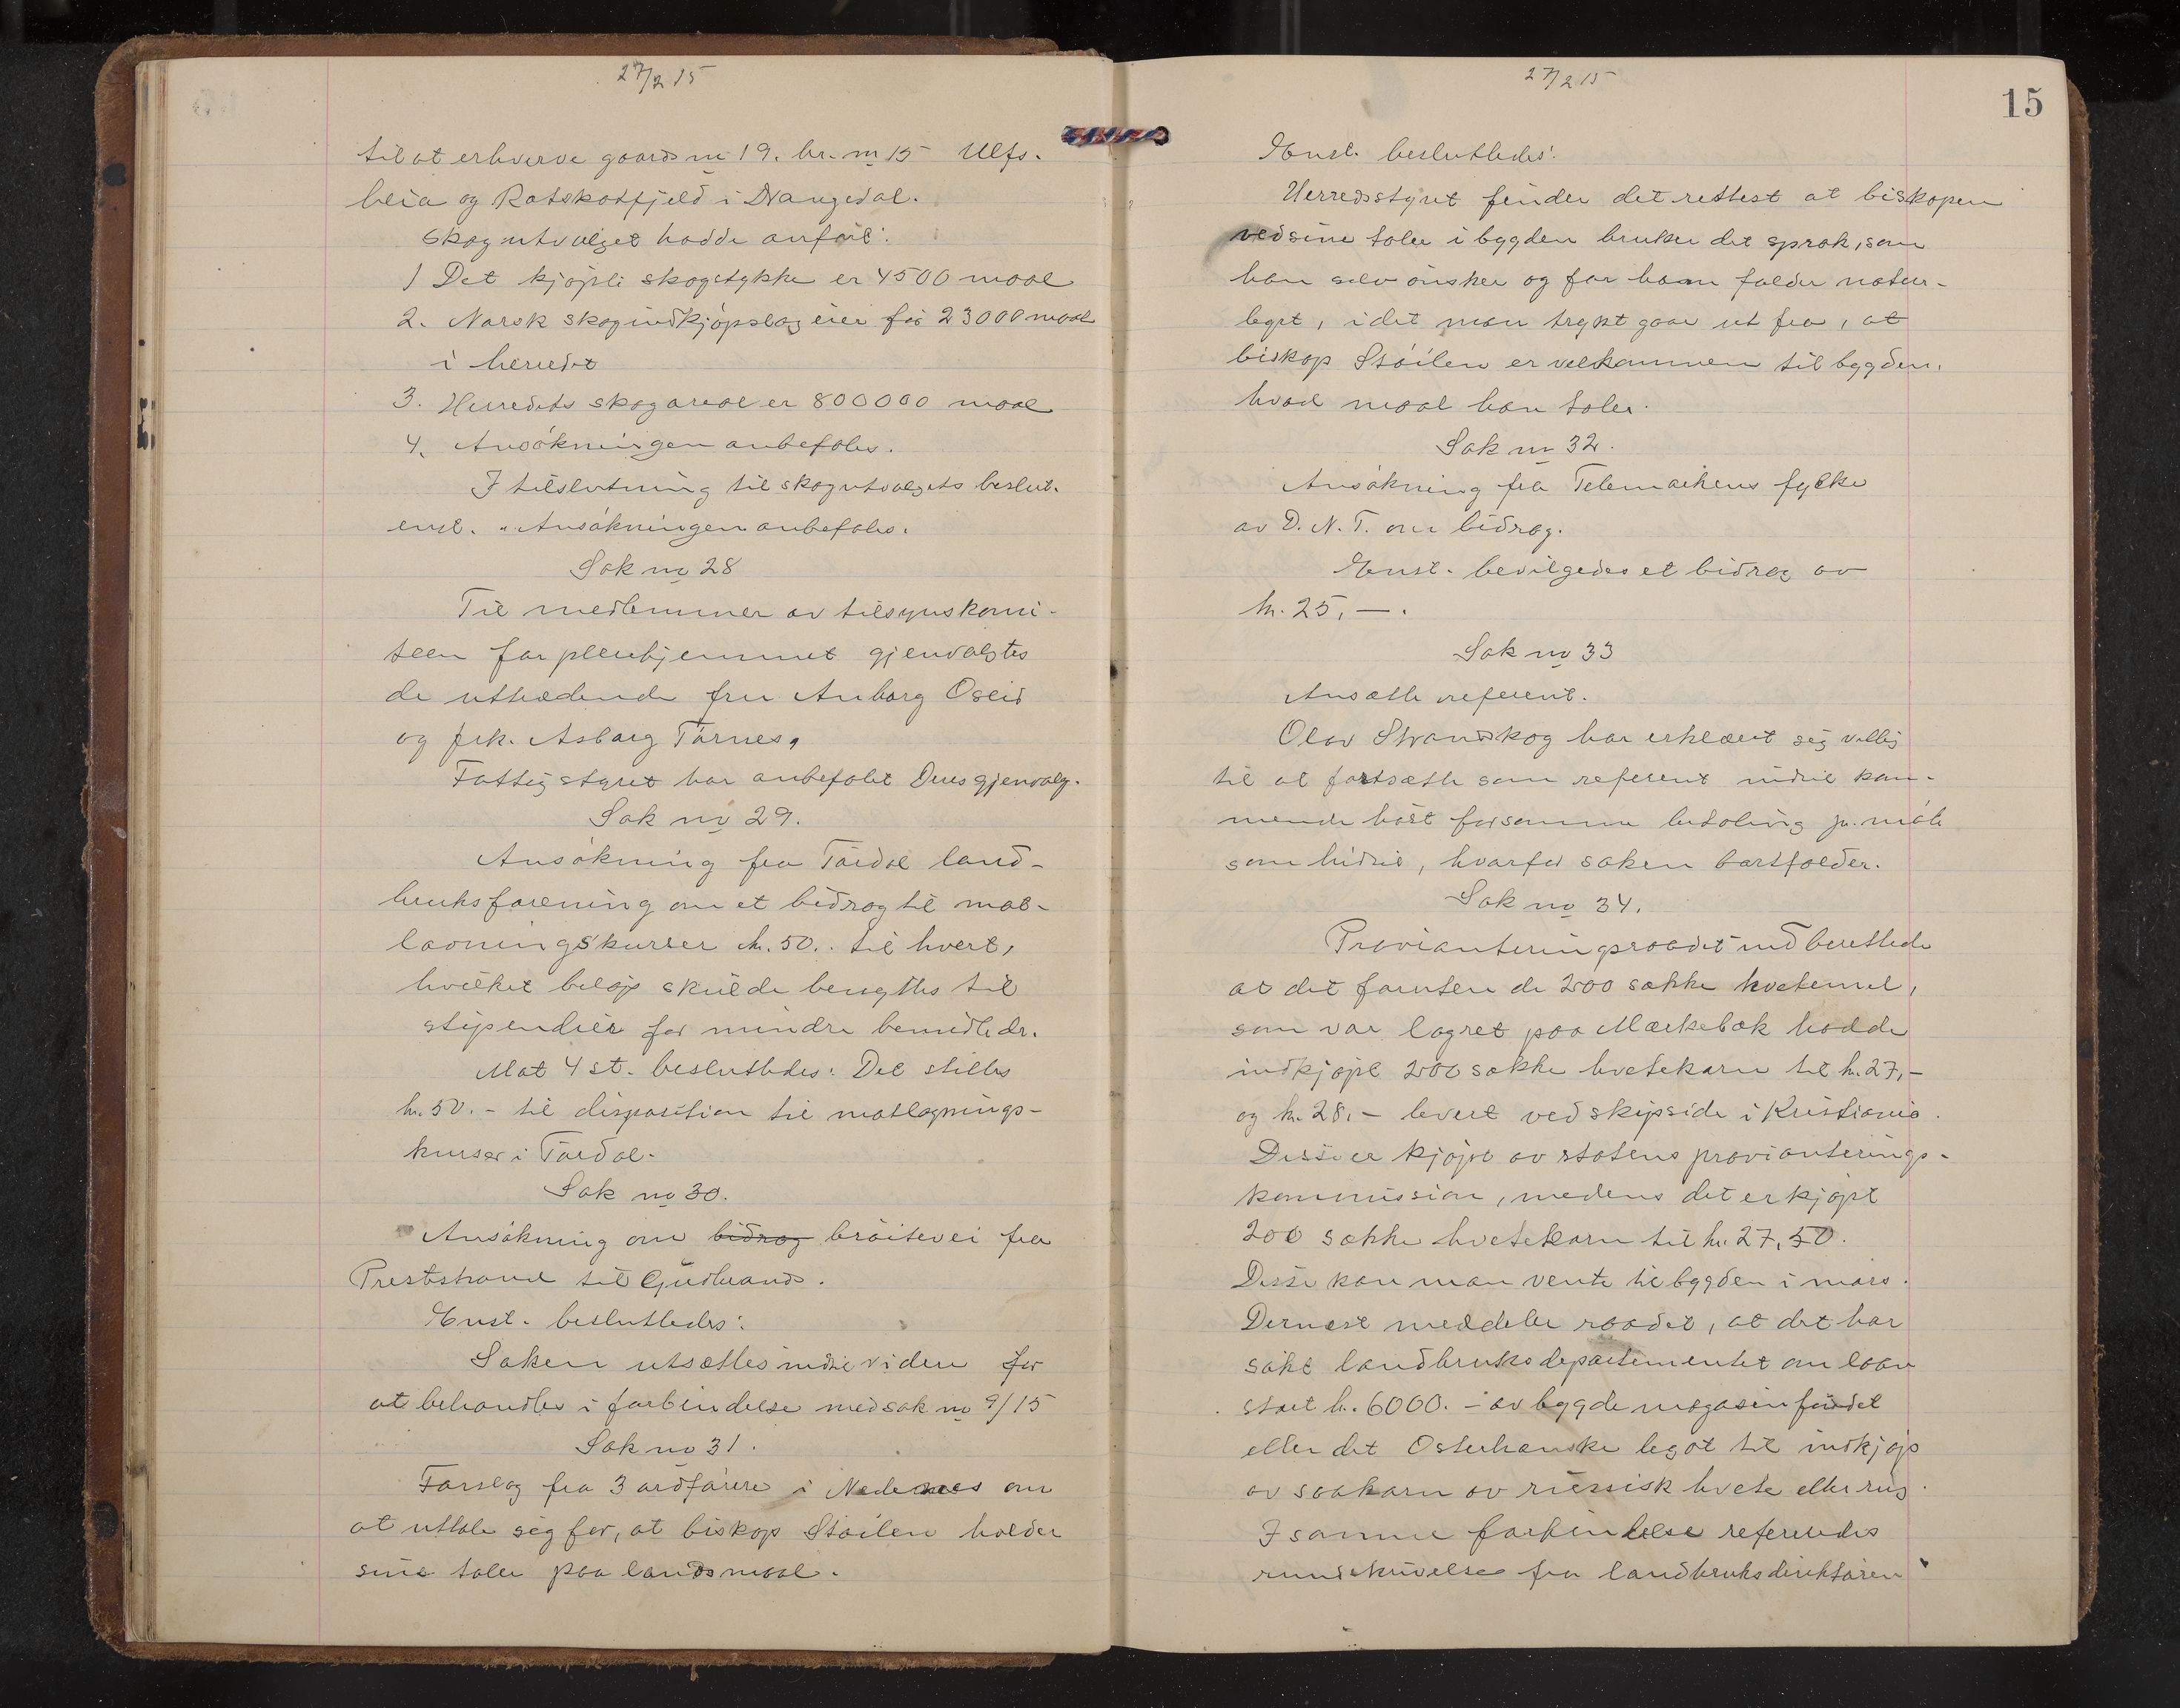 27/2 15
til at erhverve gaards nr 19. br. nr 15 Ulfs-
leia og Ratskotfjeld i Drangedal.
Skogutvalget hadde anført:
1 Det kjøpte skogstykke er 4500 maal
2. Norsk skogindkjøpslag eier før 23000 maal
i herredet
3. Herredets skogareal er 800000 maal
4. Ansøkningen anbefales.
I tilslutning til skogutvalgets beslut.
enst. "Ansøkningen anbefales.
Sak no 28
Til medlemmer av tilsynskomi-
teen for pleiehjemmet gjenvalgtes
de uttrædende fru Anborg Oseid
og frk. Asborg Tørnes,
Fattigstyret har anbefalet Deres gjenvalg.
Sak no 29.
Ansøkning fra Tørdal land-
bruksforening om et bidrag til mat-
lavningskurser kr. 50.. til hvert,
hvilket beløp skulde benyttes til
stipendier for mindre bemidlede.
Mot 4 st. besluttedes: Det stilles
kr. 50.- til disposition til matlagnings-
kurser i Tørdal.
Sak no 30.
Ansøkning om bidrag brøitevei fra
Preststrand til Gudbrands.
Enst. besluttedes:
Saken utsættes indtil videre for
at behandles i forbindelse med sak no 9/15
Sak no 31.
Forslag fra 3 ordførere i Nedenæs om
at uttale seg for, at biskop Støilen holder
sine taler paa landsmaal.
27/2 15
15
Enst. besluttedes:
Herredsstyret finder det rettest at biskopen
ved sine taler i bygden bruker det sprok, som
han selv ønsker og for ham falder natur-
legst, idet man trygt gaar ut fra, at
biskop Støilen er velkommen til bygden,
hvad maal han taler.
Sak no 32.
Ansøkning fra Telemarkens fylke
av D. N. T. om bidrag.
Enst. bevilgedes et bidrag av
kr. 25,—.
Sak no 33
Ansætte referent.
Olav Strandskog har erklæret seg villig
til at fortsætte som referent indtil kom-
mende høst for samme betaling pr. møte
som hidtil, hvorfor saken bortfalder.
Sak no 34.
Provianteringsraadet indberettede
at det foruten de 200 sække hvetemel,
som var lagret paa Mærkebæk hadde
indkjøpt 200 sække hvetekorn til kr. 27,-
og kr. 28.- levert ved skipside i Kristiania.
Disse er kjøpt av statens provianterings-
kommission, medens det er kjøpt
200 sække hvetekorn til kr. 27,50.
Disse kan man vente til bygden i mars.
Dernæst meddeler raadet, at det har
søkt landbruksdepartementet om laan
stort kr. 6000.- av bygdemagasinfondet
eller det Osterhauske legat til indkjøp
av saakorn av russisk hvete eller rug.
I samme forbindelse referertes
rundskrivelse fra landbruksdirektøren